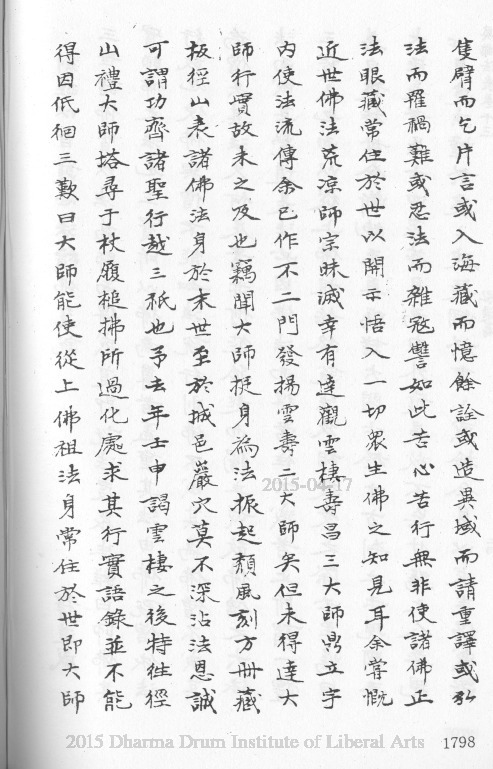 隻臂而乞片言或入海藏而憶餘詮或造異域而請重譯或弘
法而罹禍難或忍法而雜怨讐如此苦心苦行無非使諸佛正
法眼藏常住於世以開示悟入一切衆生佛之知見耳余甞慨
近世佛法荒凉師宗昧滅幸有達觀雲棲壽昌三大師鼎立宇
內使法流傳余已作不二門發揚雲壽二大師矣但未得達大
師行實故未之及也竊聞大師挺身為法振起頹風刻方冊藏
板徑山表諸佛法身於末世至於城邑巖穴莫不深沾法恩誠
可謂功齊諸聖行越三祇也予去年壬申謁雲棲之後特徃徑
山禮大師塔尋于杖履槌拂所過化處求其行實語錄並不能
得因低徊三歎曰大師能使從上佛祖法身常住於世即大師
2015-04-17
2015 Dharma Drum Institute of Liberal Arts
1798